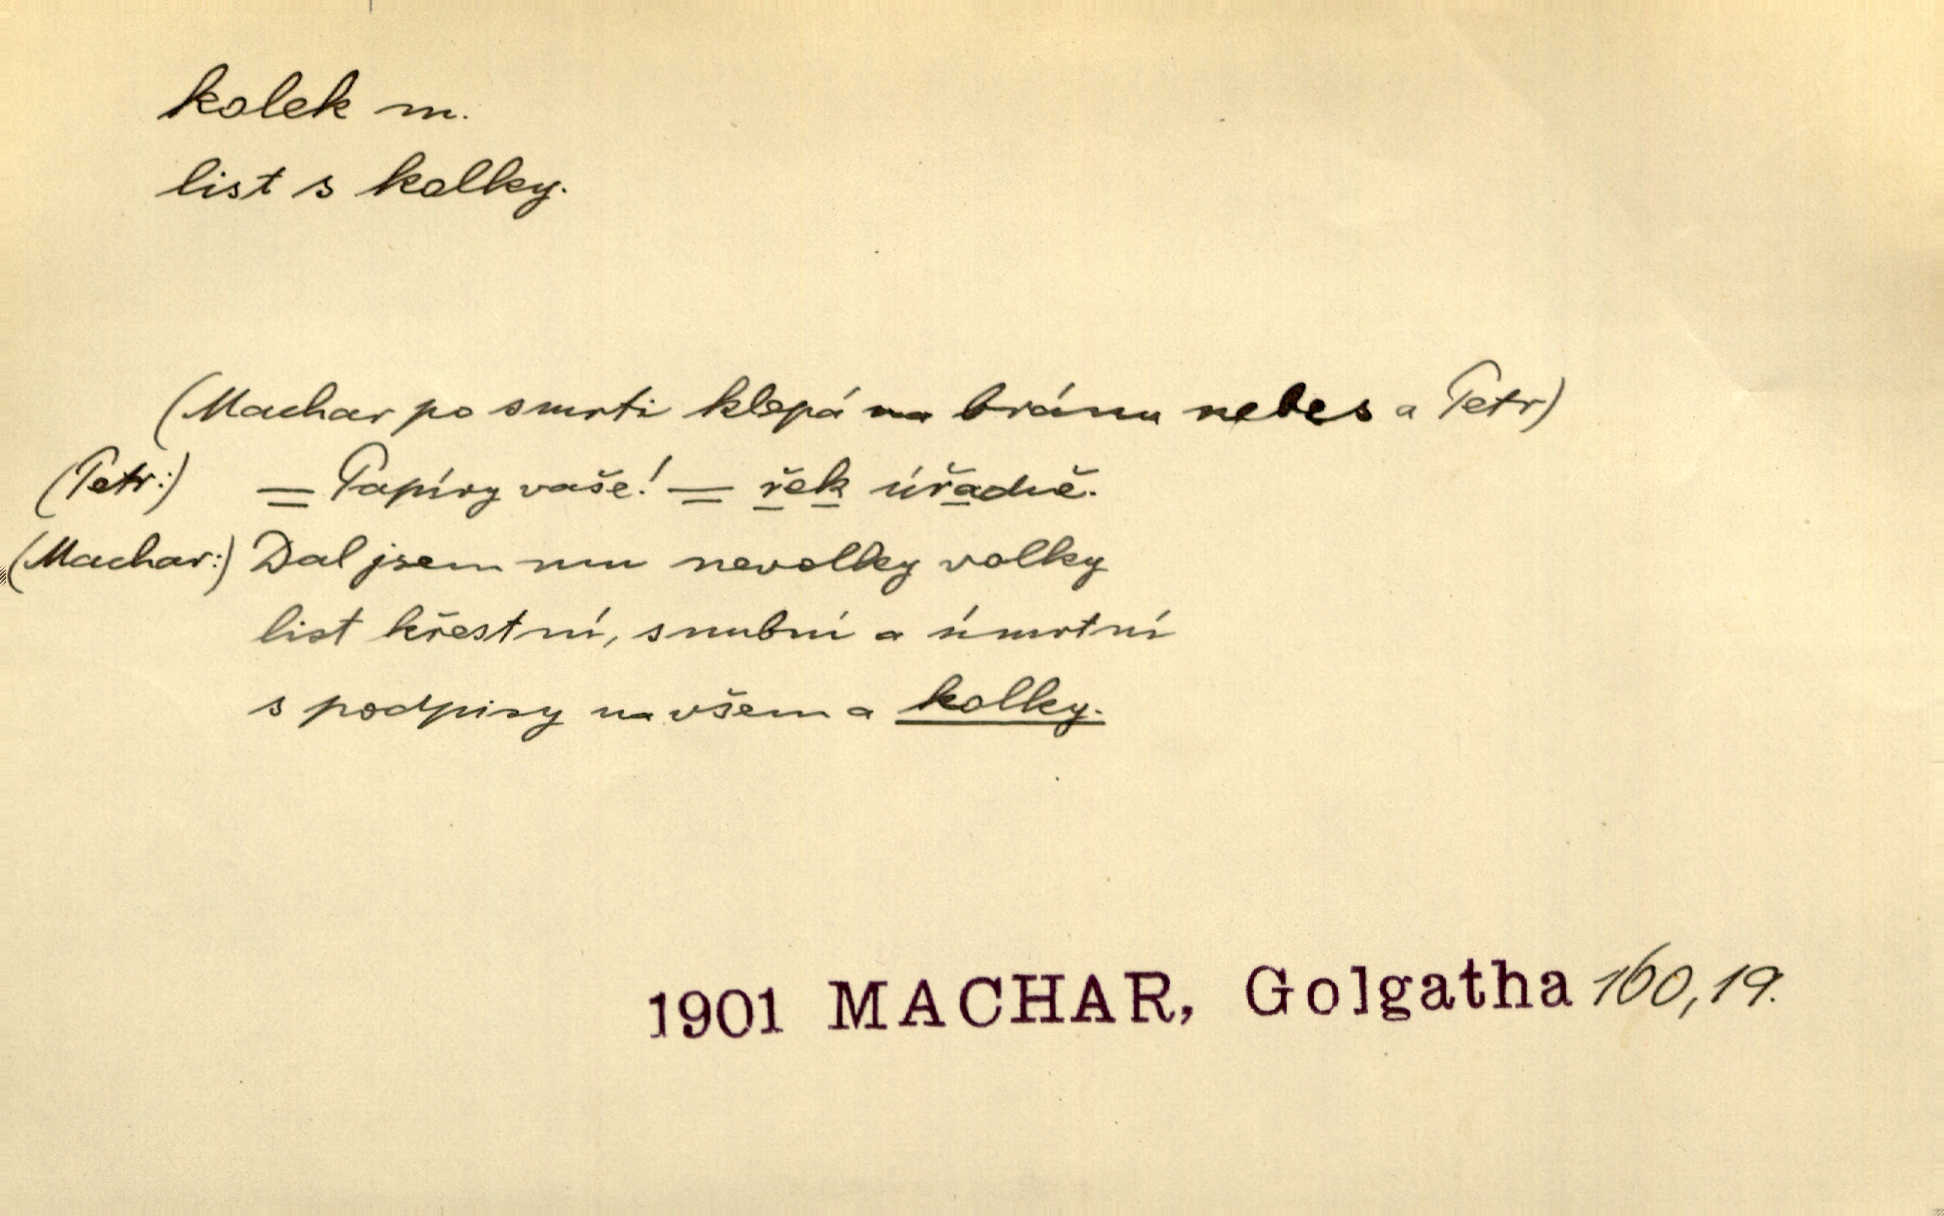 kolek m.
list s kolky.
(Machar po smrti klepá na bránu nebes a Petr)
(Petr:) = Papíry vaše! = řek úřadně.
(Machar:) Dal jsem mu nevolky volky
list křestní, snubní a úmrtní
s podpisy na všem a kolky.
1901 MACHAR, Golgatha 160,19.